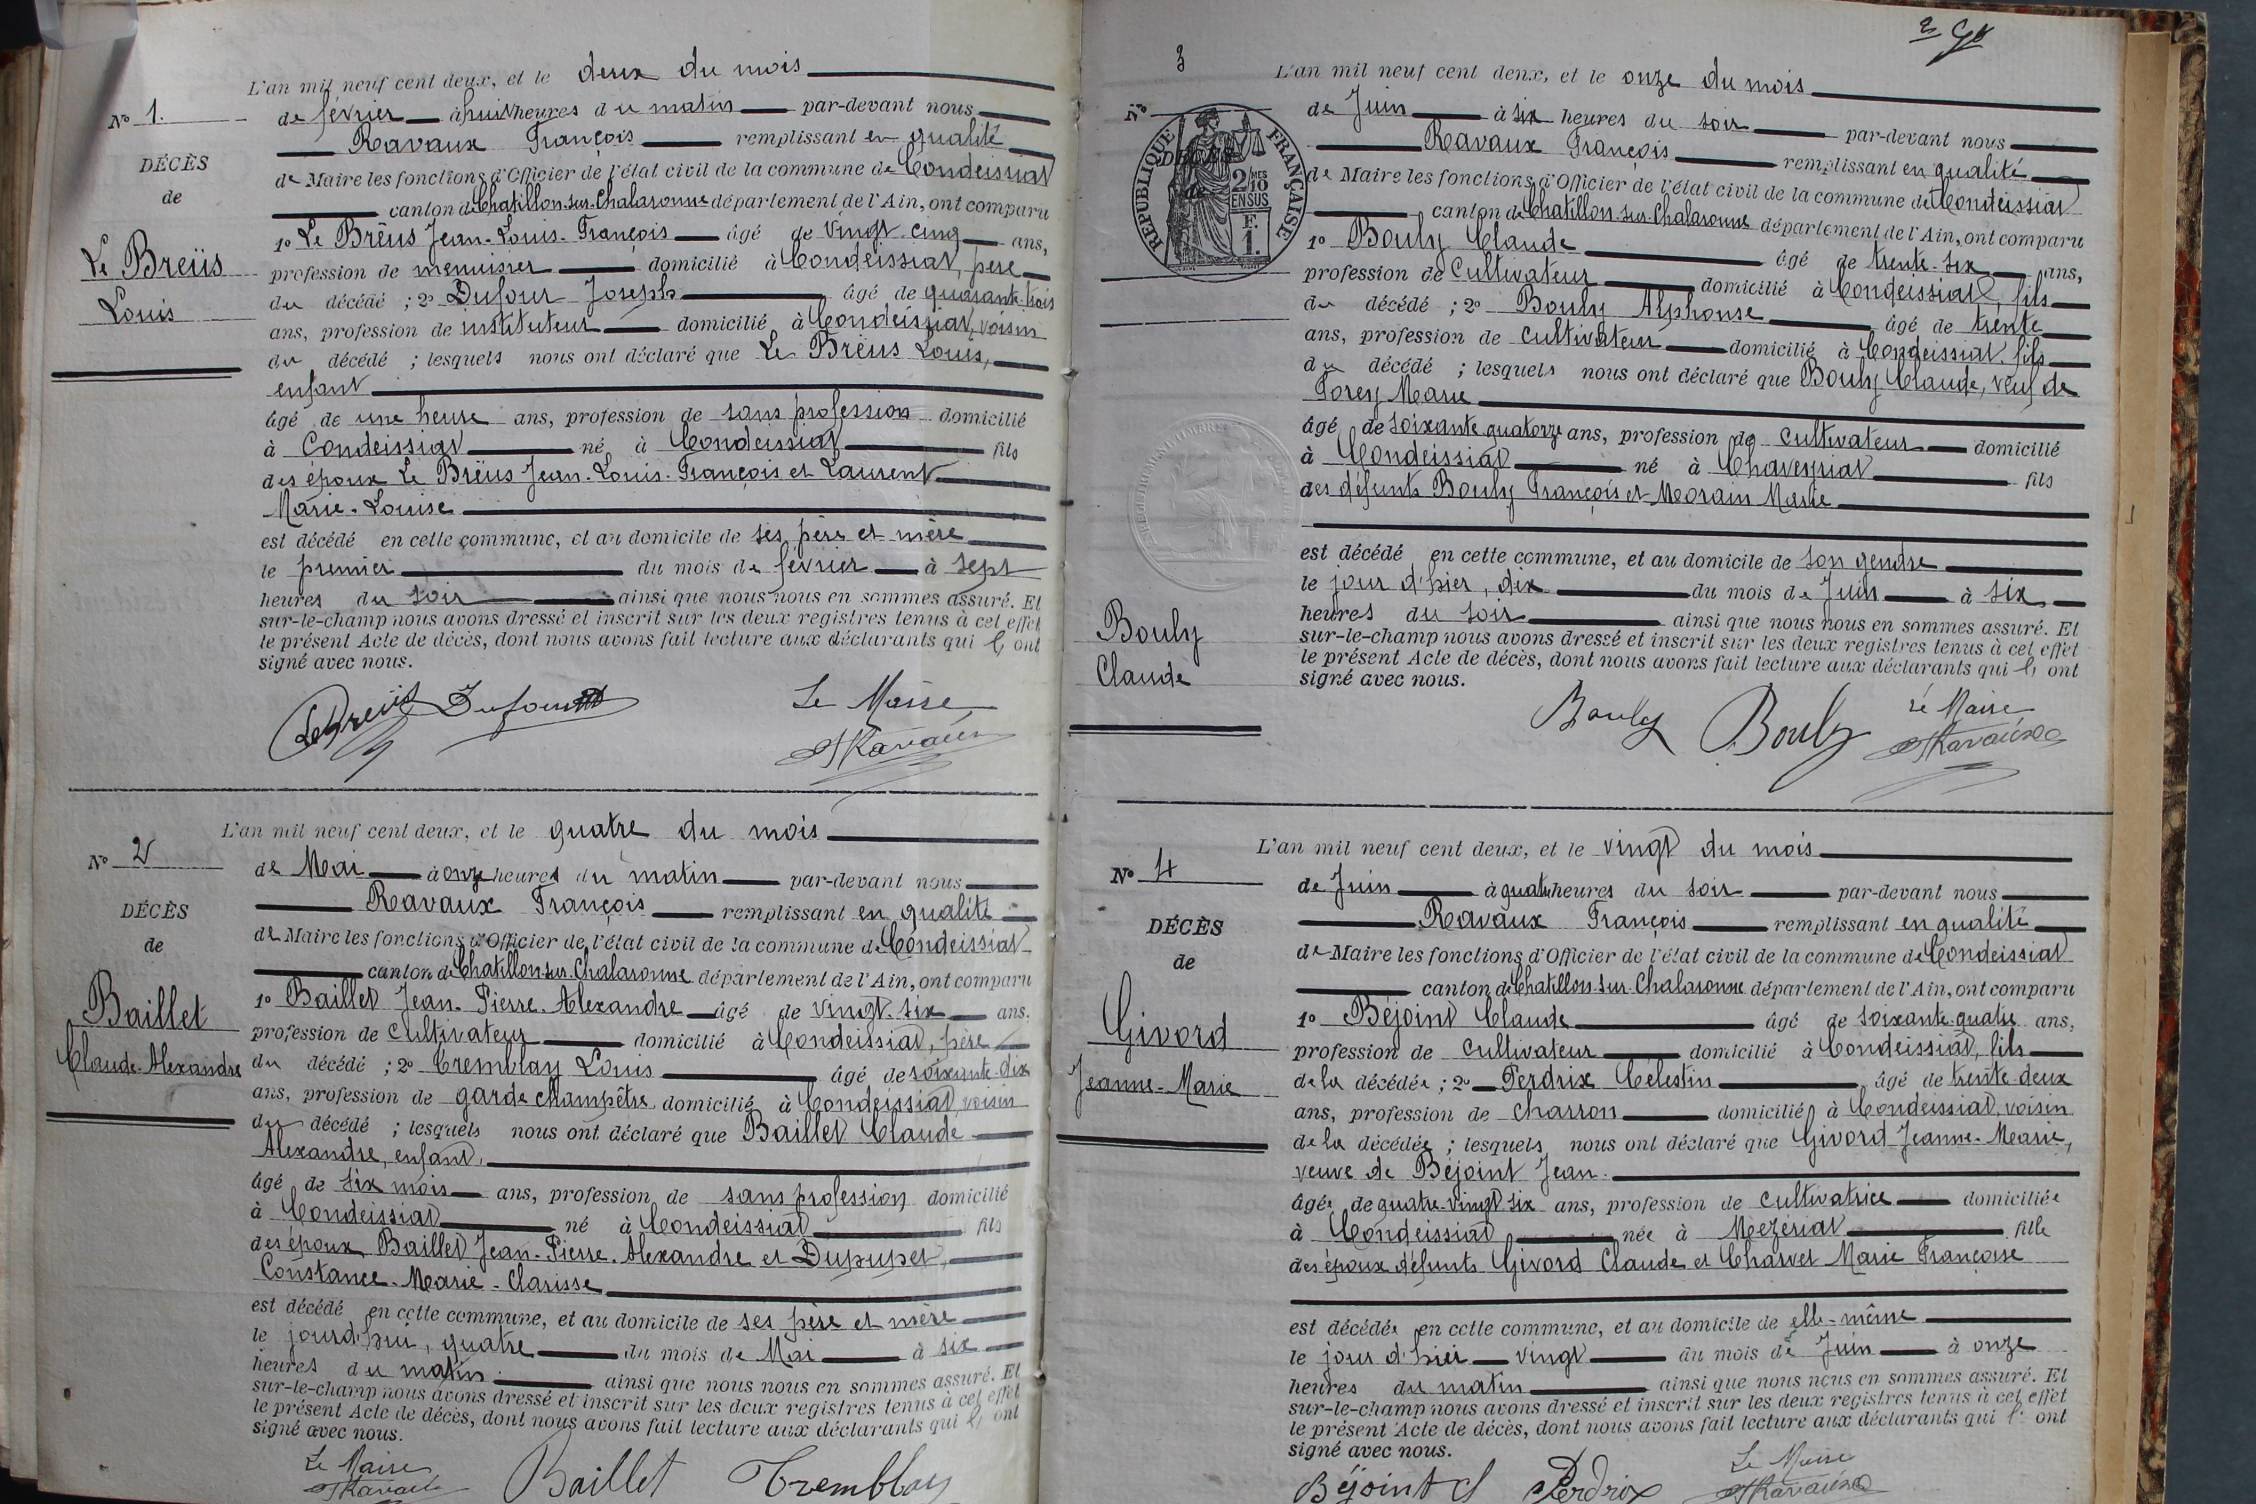 L'an mil neuf cent deux, et le deux du mois
N° 1.
de février à huit heures du matin par-devant nous
Ravaux François remplissant en qualité
DÉCÈS
de Maire les fonctions d'Officier de l'état civil de la commune de Condeissiat
de
canton de Chatillon-sur-Chalaronne département de l'Ain, ont comparu
1° Le Breüs Jean-Louis-François âgé de vingt-cinq ans,
Le Breüs
Louis
profession de menuisier domicilié à Condeissiat, père
du décédé ; 2° Dufour Joseph âgé de quarante-trois
ans, profession de instituteur domicilié à Condeissiat, voisin
du décédé ; lesquels nous ont déclaré que Le Breüs Louis,
enfant
âgé de une heure ans, profession de sans profession domicilié
à Condeissiat né à Condeissiat fils
des époux Le Breüs Jean-Louis-François et Laurent
Marie-Louise
est décédé en cette commune, et au domicile de ses père et mère
le premier du mois de février à sept
heures du soir ainsi que nous nous en sommes assuré. Et
sur-le-champ nous avons dressé et inscrit sur les deux registres tenus à cet effet
le présent Acte de décès, dont nous avons fait lecture aux déclarants qui l' ont
signé avec nous.
Le Breüs Dufour Le Maire
Ravaux
L'an mil neuf cent deux, et le quatre du mois
N° 2
de Mai à onze heures du matin par-devant nous
Ravaux François remplissant en qualité
DÉCÈS
de Maire les fonctions d'Officier de l'état civil de la commune de Condeissiat
de
canton de Chatillon-sur-Chalaronne département de l'Ain, ont comparu
1° Baillet Jean-Pierre-Alexandre âgé de vingt-six ans.
Baillet
Claude-Alexandre
profession de cultivateur domicilié à Condeissiat, père
du décédé ; 2° Tremblay Louis âgé de soixante-dix
ans, profession de garde champêtre domicilié à Condeissiat, voisin
du décédé ; lesquels nous ont déclaré que Baillet Claude
Alexandre, enfant,
âgé de six mois ans, profession de sans profession domicilié
à Condeissiat né à Condeissiat fils
des époux Baillet Jean-Pierre-Alexandre et Dupupet,
Constance-Marie-Clarisse
est décédé en cette commune, et au domicile de ses père et mère
le jourd'hui, quatre du mois de Mai à six
heures du matin ainsi que nous nous en sommes assuré. Et
sur-le-champ nous avons dressé et inscrit sur les deux registres tenus à cet effet
le présent Acte de décès, dont nous avons fait lecture aux déclarants qui l' ont
signé avec nous.
Le Maire
Ravaux Baillet Tremblay
3
L'an mil neuf cent deux, et le onze du mois
N°
de Juin à six heures du soir par-devant nous
Ravaux François remplissant en qualité
DÉCÈS
de
RÉPUBLIQUE FRANÇAISE
2/10 MES
EN SUS
F.
1.
de Maire les fonctions d'Officier de l'état civil de la commune de Condeissiat
canton de Chatillon-sur-Chalaronne département de l'Ain, ont comparu
1° Bouly Claude âgé de trente-six ans,
profession de cultivateur domicilié à Condeissiat, fils
du décédé ; 2° Bouly Alphonse âgé de trente
ans, profession de cultivateur domicilié à Condeissiat, fils
du décédé ; lesquels nous ont déclaré que Bouly Claude, veuf de
Porey Marie
âgé de soixante quatorze ans, profession de cultivateur domicilié
à Condeissiat né à Chaveyriat fils
des défunts Bouly François et Morain Marie
est décédé en cette commune, et au domicile de son gendre
le jour d'hier, dix du mois de Juin à six
heures du soir ainsi que nous nous en sommes assuré. Et
Bouly
Claude
sur-le-champ nous avons dressé et inscrit sur les deux registres tenus à cet effet
le présent Acte de décès, dont nous avons fait lecture aux déclarants qui l' ont
signé avec nous.
Bouly Bouly Le Maire
Ravaux
L'an mil neuf cent deux, et le vingt du mois
N° 4
de Juin à quatre heures du soir par-devant nous
Ravaux François remplissant en qualité
DÉCÈS
de Maire les fonctions d'Officier de l'état civil de la commune de Condeissiat
de
canton de Chatillon-sur-Chalaronne département de l'Ain, ont comparu
1° Béjoint Claude âgé de soixante-quatre ans,
Givord
Jeanne-Marie
profession de cultivateur domicilié à Condeissiat, fils
de la décédée ; 2° Perdrix Célestin âgé de trente-deux
ans, profession de charron domicilié à Condeissiat, voisin
de la décédée ; lesquels nous ont déclaré que Givord Jeanne-Marie,
veuve de Béjoint Jean.
âgée de quatre-vingt six ans, profession de cultivatrice domiciliée
à Condeissiat née à Mezériat fille
des époux défunts Givord Claude et Charvet Marie Françoise
est décédée en cette commune, et au domicile de elle-même
le jour d'hier vingt du mois de Juin à onze
heures du matin ainsi que nous nous en sommes assuré. Et
sur-le-champ nous avons dressé et inscrit sur les deux registres tenus à cet effet
le présent Acte de décès, dont nous avons fait lecture aux déclarants qui l' ont
signé avec nous.
Béjoint Cl Perdrix Le Maire
Ravaux